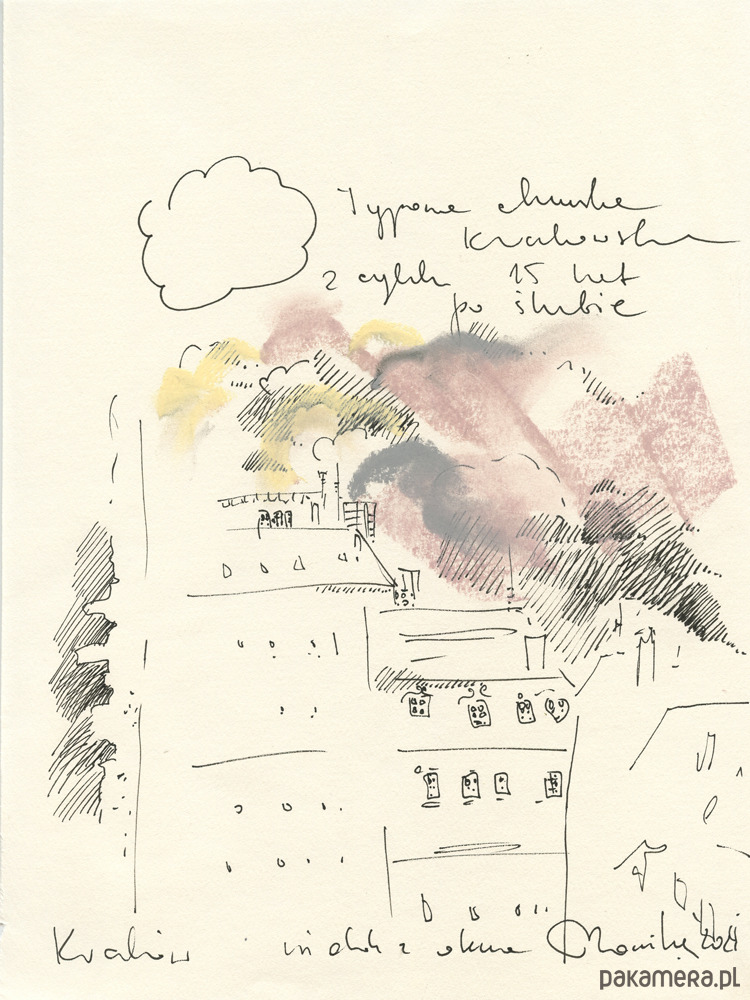 Typowa chmurka
Krakowska
z cyklu 15 lat
po ślubie
Kraków widok z okna Monika
pakamera.pl